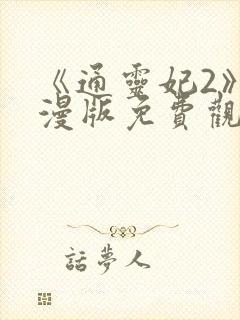 《通靈妃2》
漫版免費觀
話夢人